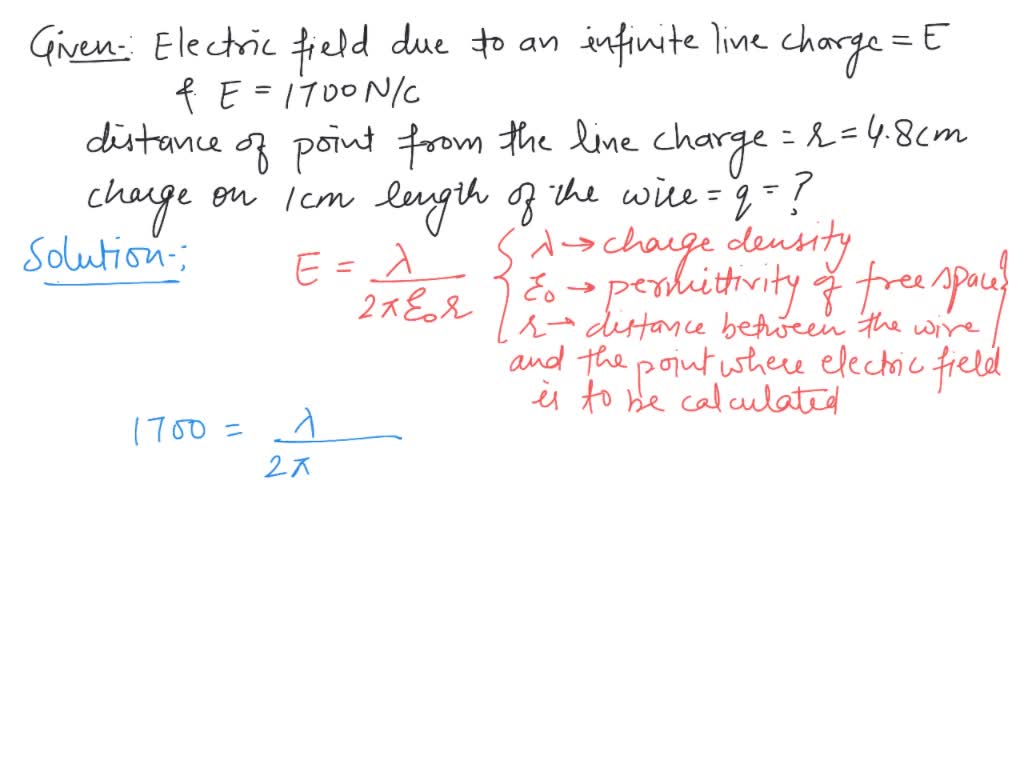 Given:- Electric field due to an infinite line charge = E
& E = 1700 N/C
distance of point from the line charge = r = 4.8cm
charge on 1cm length of the wire = q = ?
Solution:-
E = λ / 2πε₀r
{ λ → charge density
ε₀ → permittivity of free space
r → distance between the wire }
and the point where electric field
is to be calculated
1700 = λ / 2π